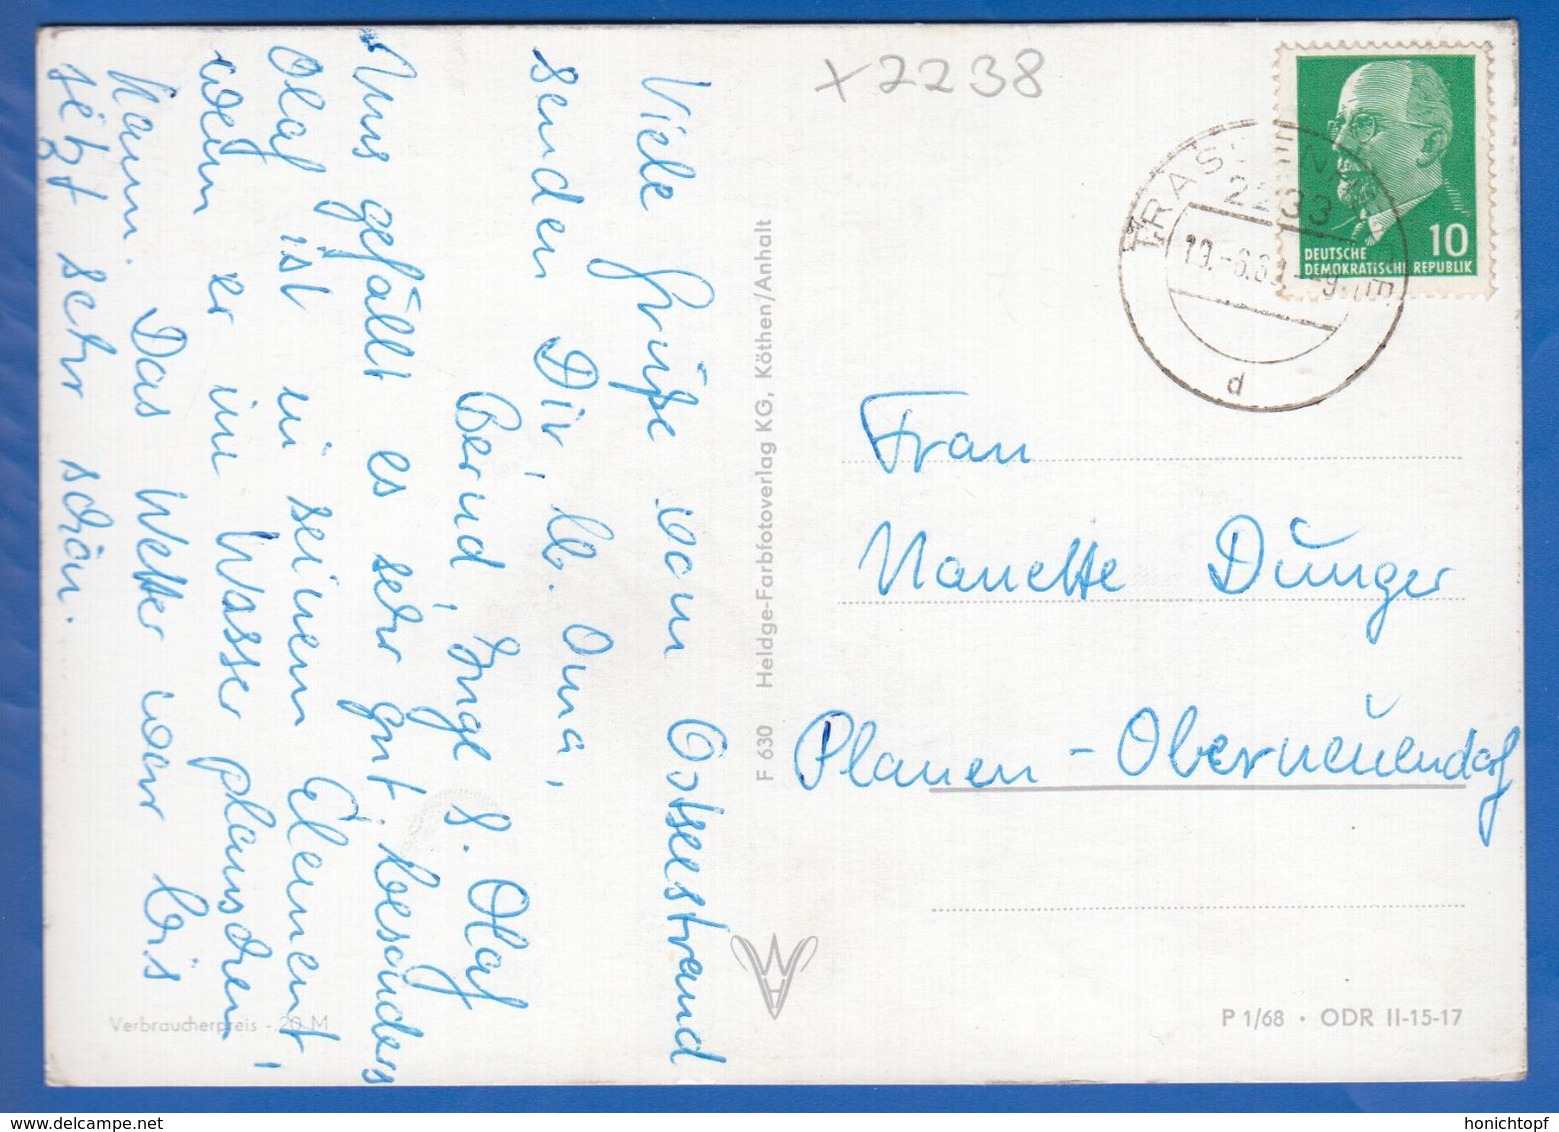 Viele Grüße vom Ostseestrand
senden Dir, lb. Oma,
Bernd, Inge u. Olaf
Uns gefällt es sehr gut, besonders
Olaf ist in seinem Element,
wenn er im Wasser planschen
kann. Das Wetter war bis
jetzt sehr schön.
x2238
DEUTSCHE
DEMOKRATISCHE REPUBLIK
10
2233
d
F 630 Heldge-Farbfotoverlag KG, Köthen/Anhalt
Frau
Nanette Dünger
Plauen - Oberneuendorf
Verbraucherpreis -.20 M
P 1/68 • ODR II-15-17
delcampe.net
honichtopf